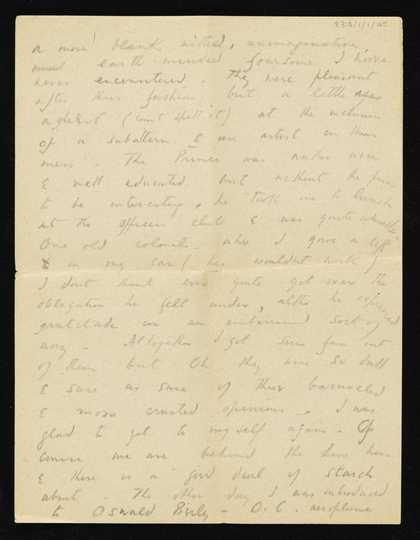 a more blank witted, unimaginative,
mud earth minded foursome I have
never encountered. They were pleasant
after their fashion but a little
aghast (can't spell it) at the inclusion
of a subaltern & an artist in their
mess. The Prince was rather nice
& well educated but without the
to be interesting, he took me to lunch
at the officers club & was quite
One old colonel who I gave a lift
to in my car (his wouldn't work)
I dont think ever quite got over the
obligation he felt under, altho he expressed
gratitude in an sort of
way. Altogether I got some fun out
of them but Oh they were so dull
& sure as sure of their barnacled
& moss crusted opinions, I was
glad to get to myself again. Of
course we are behind the lines here
& there is a good deal of starch
about. The other day I was introduced
to Oswald Birley - O.C. aeroplane